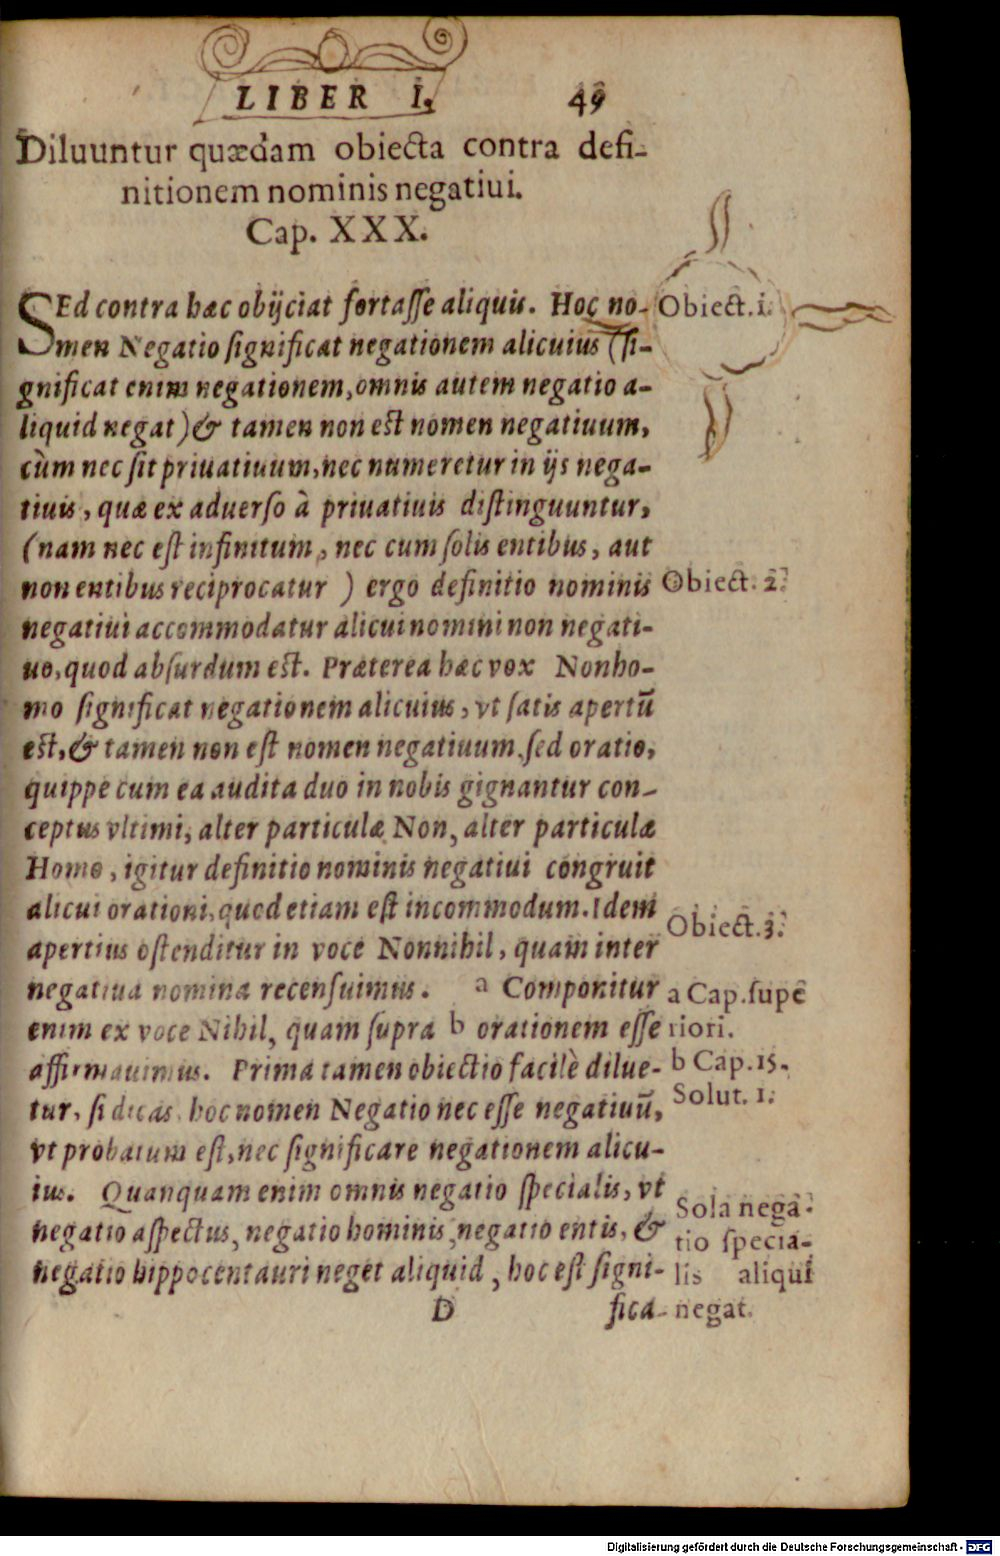 LIBER I. 49
Diluuntur quædam obiecta contra defi-
nitionem nominis negatiui.
Cap. XXX.
SEd contra hæc obijciat fortasse aliquis. Hoc no-
men Negatio significat negationem alicuius (si-
gnificat enim negationem, omnis autem negatio a-
liquid negat) & tamen non est nomen negatiuum,
cùm nec sit priuatiuum, nec numeretur in ijs nega-
tiuis, quæ ex aduerso à priuatiuis distinguuntur,
(nam nec est infinitum, nec cum solis entibus, aut
non entibus reciprocatur ) ergo definitio nominis
negatiui accommodatur alicui nomini non negati-
uo, quod absurdum est. Præterea hæc vox Nonho-
mo significat negationem alicuius, vt satis apertũ
est, & tamen non est nomen negatiuum, sed oratio,
quippe cum ea audita duo in nobis gignantur con-
ceptus vltimi, alter particulæ Non, alter particulæ
Homo, igitur definitio nominis negatiui congruit
alicui orationi, quod etiam est incommodum. Idem
apertius ostenditur in voce Nonnihil, quam inter
negatiua nomina recensuimus. a Componitur
enim ex voce Nihil, quam supra b orationem esse
affirmauimus. Prima tamen obiectio facilè dilue-
tur, si dicas, hoc nomen Negatio nec esse negatiuũ,
vt probatum est, nec significare negationem alicu-
ius. Quanquam enim omnis negatio specialis, vt
negatio aspectus, negatio hominis, negatio entis, &
negatio hippocentauri neget aliquid, hoc est signi-
D fica-
Obiect. 1.
Obiect. 2.
Obiect. 3.
a Cap. supe
riori.
b Cap. 15.
Solut. 1.
Sola nega-
tio specia-
lis aliqui
negat.
Digitalisierung gefördert durch die Deutsche Forschungsgemeinschaft - DFG